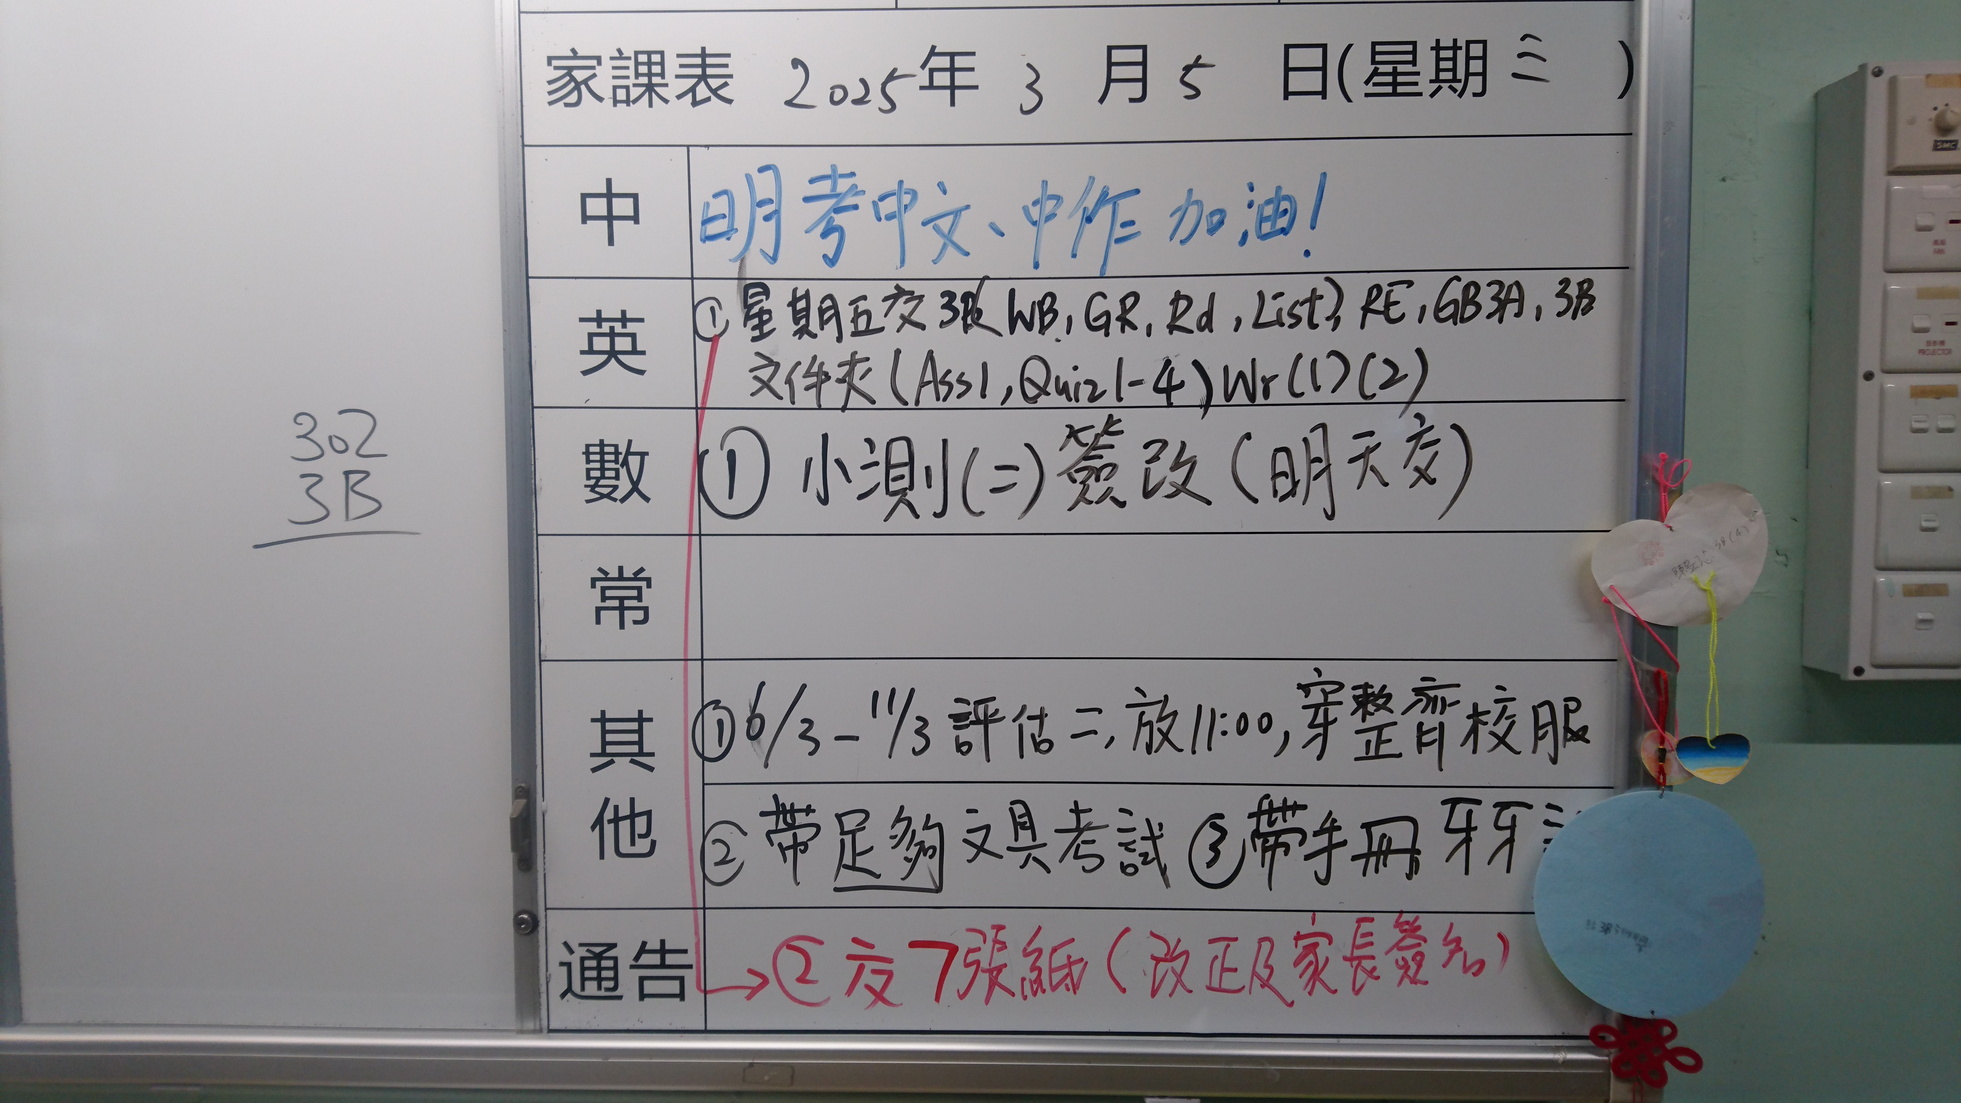 家課表 2025年 3 月 5 日(星期三 )
302
3B
中 明考中文、中作 加油!
英 ①星期五交3B(WB, GR, Rd, List), RE, GB3A, 3B
文件夾(Ass1, Quiz1-4) Wr(1)(2)
數 ① 小測(二)簽改(明天交)
常
其他 ①6/3-11/3 評估二,放11:00,穿整齊校服
②帶足夠文具考試 ③帶手冊 牙牙
通告 ②交7張紙(改正及家長簽名)
SMC
PROJECTOR